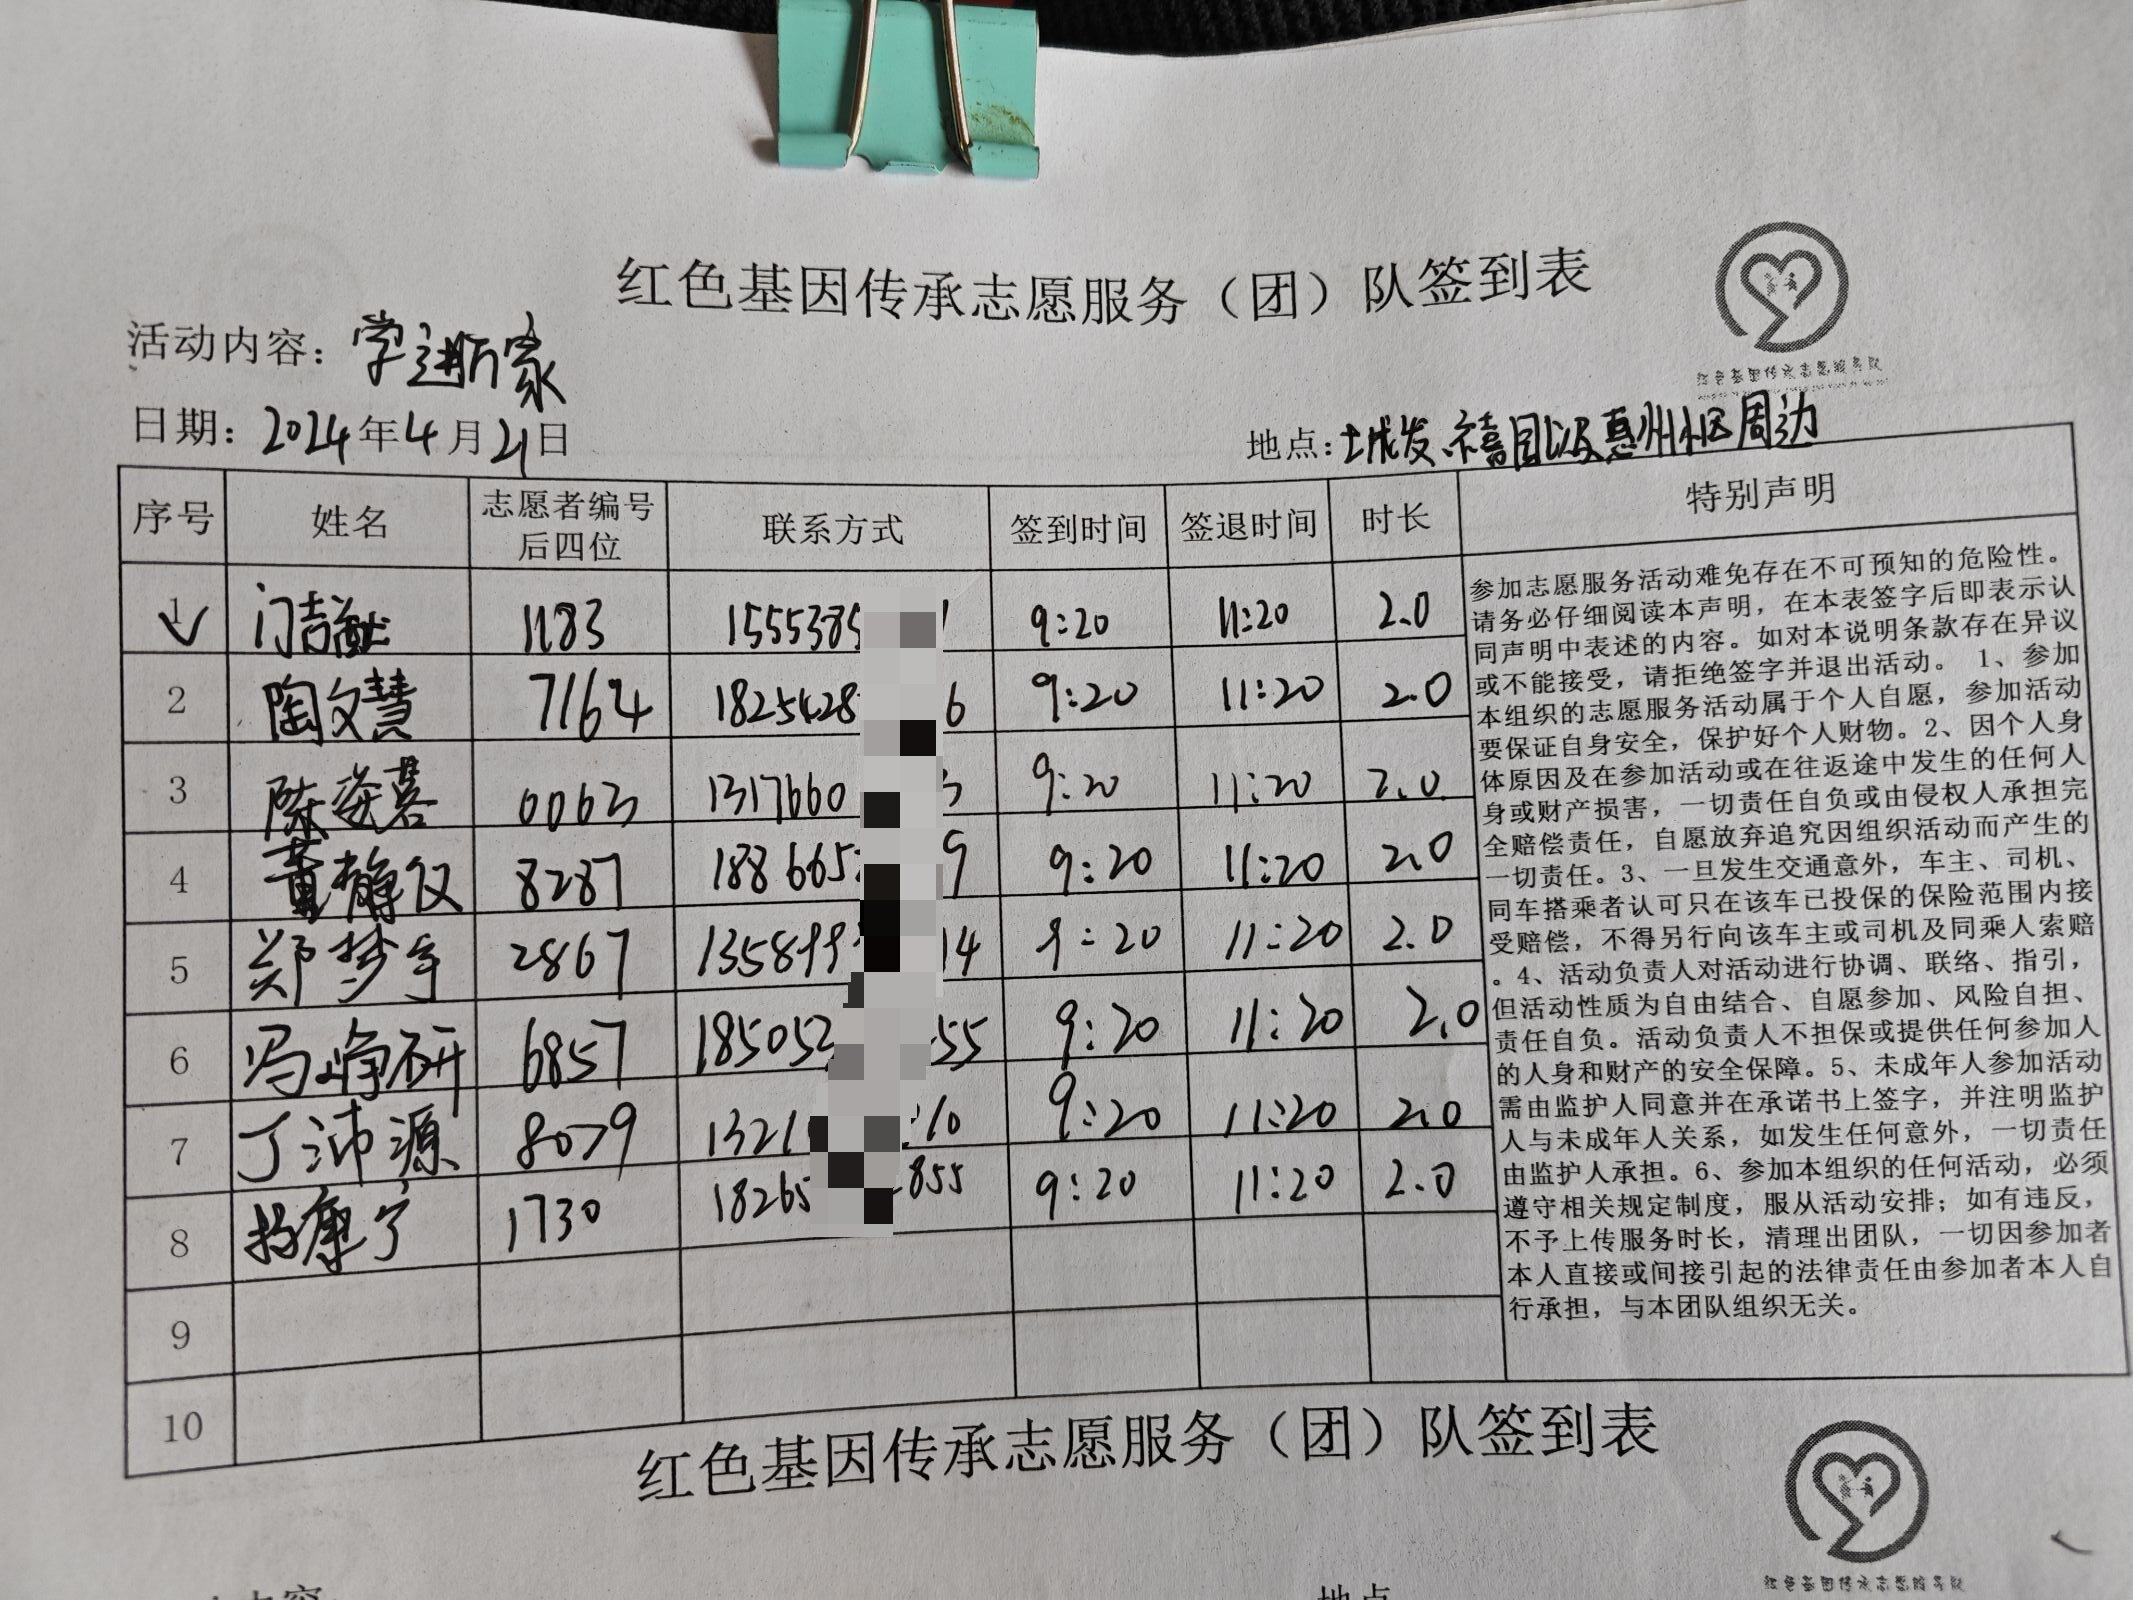 红色基因传承志愿服务（团）队签到表
活动内容：学进万家
日期：2024年4月21日
地点：城发禧园以及惠州社区周边
序号 姓名 志愿者编号后四位 联系方式 签到时间 签退时间 时长 特别声明
1 1183 1555385 9:20 11:20 2.0
2 陶文慧 7164 1825428 6 9:20 11:20 2.0
3 0063 1317660 3 9:20 11:20 2.0
4 董静仪 8287 188665 9 9:20 11:20 2.0
5 郑梦宇 2867 135899 14 9:20 11:20 2.0
6 冯峥研 6857 185052 55 9:20 11:20 2.0
7 丁沛源 8079 1321 10 9:20 11:20 2.0
8 康宁 1730 18265 855 9:20 11:20 2.0
9
10
参加志愿服务活动难免存在不可预知的危险性。
请务必仔细阅读本声明，在本表签字后即表示认
同声明中表述的内容。如对本说明条款存在异议
或不能接受，请拒绝签字并退出活动。 1、参加
本组织的志愿服务活动属于个人自愿，参加活动
要保证自身安全，保护好个人财物。2、因个人身
体原因及在参加活动或在往返途中发生的任何人
身或财产损害，一切责任自负或由侵权人承担完
全赔偿责任，自愿放弃追究因组织活动而产生的
一切责任。3、一旦发生交通意外，车主、司机、
同车搭乘者认可只在该车已投保的保险范围内接
受赔偿，不得另行向该车主或司机及同乘人索赔
。4、活动负责人对活动进行协调、联络、指引，
但活动性质为自由结合、自愿参加、风险自担、
责任自负。活动负责人不担保或提供任何参加人
的人身和财产的安全保障。5、未成年人参加活动
需由监护人同意并在承诺书上签字，并注明监护
人与未成年人关系，如发生任何意外，一切责任
由监护人承担。6、参加本组织的任何活动，必须
遵守相关规定制度，服从活动安排；如有违反，
不予上传服务时长，清理出团队，一切因参加者
本人直接或间接引起的法律责任由参加者本人自
行承担，与本团队组织无关。
红色基因传承志愿服务（团）队签到表
红色基因传承志愿服务队
地点